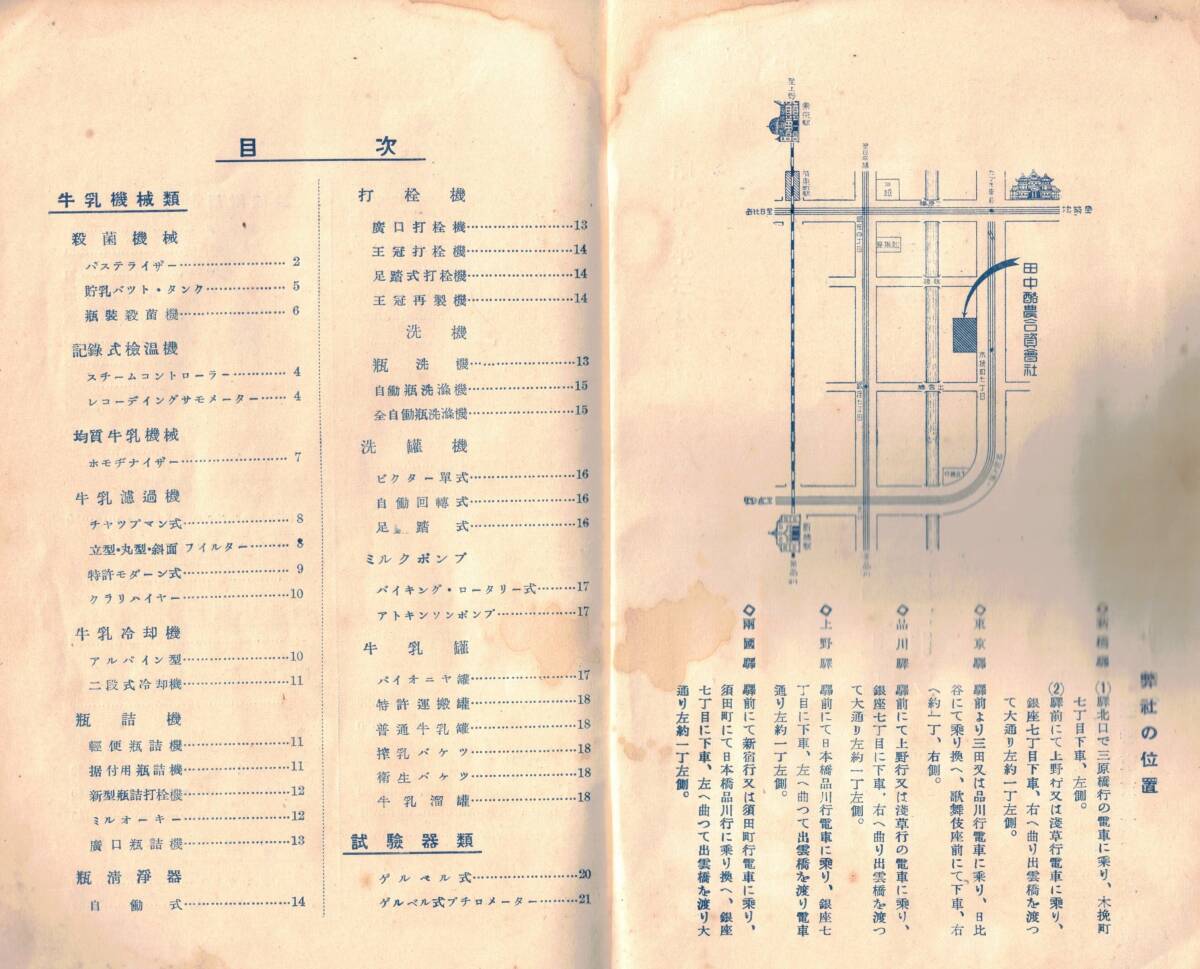 目次
牛乳機械類
殺菌機械
パステライザー……………………2
貯乳バツト・タンク………………5
瓶裝殺菌機……………………6
記錄式檢溫機
スチームコントローラー…………4
レコーデイングサモメーター……4
均質牛乳機械
ホモヂナイザー……………………7
牛乳濾過機
チヤツプマン式……………………8
立型・丸型・斜面フイルター………8
特許モダーン式……………………9
クラリハイヤー……………………10
牛乳冷却機
アルパイン型……………………10
二段式冷却機……………………11
瓶詰機
輕便瓶詰機……………………11
据付用瓶詰機……………………11
新型瓶詰打栓機……………………12
ミルオーキー……………………12
廣口瓶詰機……………………13
瓶淸淨器
自働式……………………14
打栓機
廣口打栓機……………………13
王冠打栓機……………………14
足踏式打栓機……………………14
王冠再製機……………………14
洗機
瓶洗機……………………13
自働瓶洗滌機……………………15
全自働瓶洗滌機……………………15
洗罐機
ビクター單式……………………16
自働回轉式……………………16
足踏式……………………16
ミルクポンプ
バイキング・ロータリー式………17
アトキンソンポンプ……………17
牛乳罐
パイオニヤ罐……………………17
特許運搬罐……………………18
普通牛乳罐……………………18
搾乳バケツ……………………18
衞生バケツ……………………18
牛乳溜罐……………………18
試驗器類
ゲルベル式……………………20
ゲルベル式ブチロメーター………21
田中酪農合資會社
木挽町七丁目
弊社の位置
◇新橋驛 (1)驛北口で三原橋行の電車に乘り、木挽町
七丁目下車、左側。
(2)驛前にて上野行又は淺草行電車に乘り、
銀座七丁目下車、右へ曲り出雲橋を渡つ
て大通り左約一丁左側。
◇東京驛 驛前より三田又は品川行電車に乘り、日比
谷にて乘り換へ、歌舞伎座前にて下車、右
へ約一丁、右側。
◇品川驛 驛前にて上野行又は淺草行の電車に乘り、
銀座七丁目に下車、右へ曲り出雲橋を渡つ
て大通り左約一丁左側。
◇上野驛 驛前にて日本橋品川行電車に乘り、銀座七
丁目に下車、左へ曲つて出雲橋を渡り電車
通り左約一丁左側。
◇兩國驛 驛前にて新宿行又は須田町行電車に乘り、
須田町にて日本橋品川行に乘り換へ、銀座
七丁目に下車、左へ曲つて出雲橋を渡り大
通り左約一丁左側。